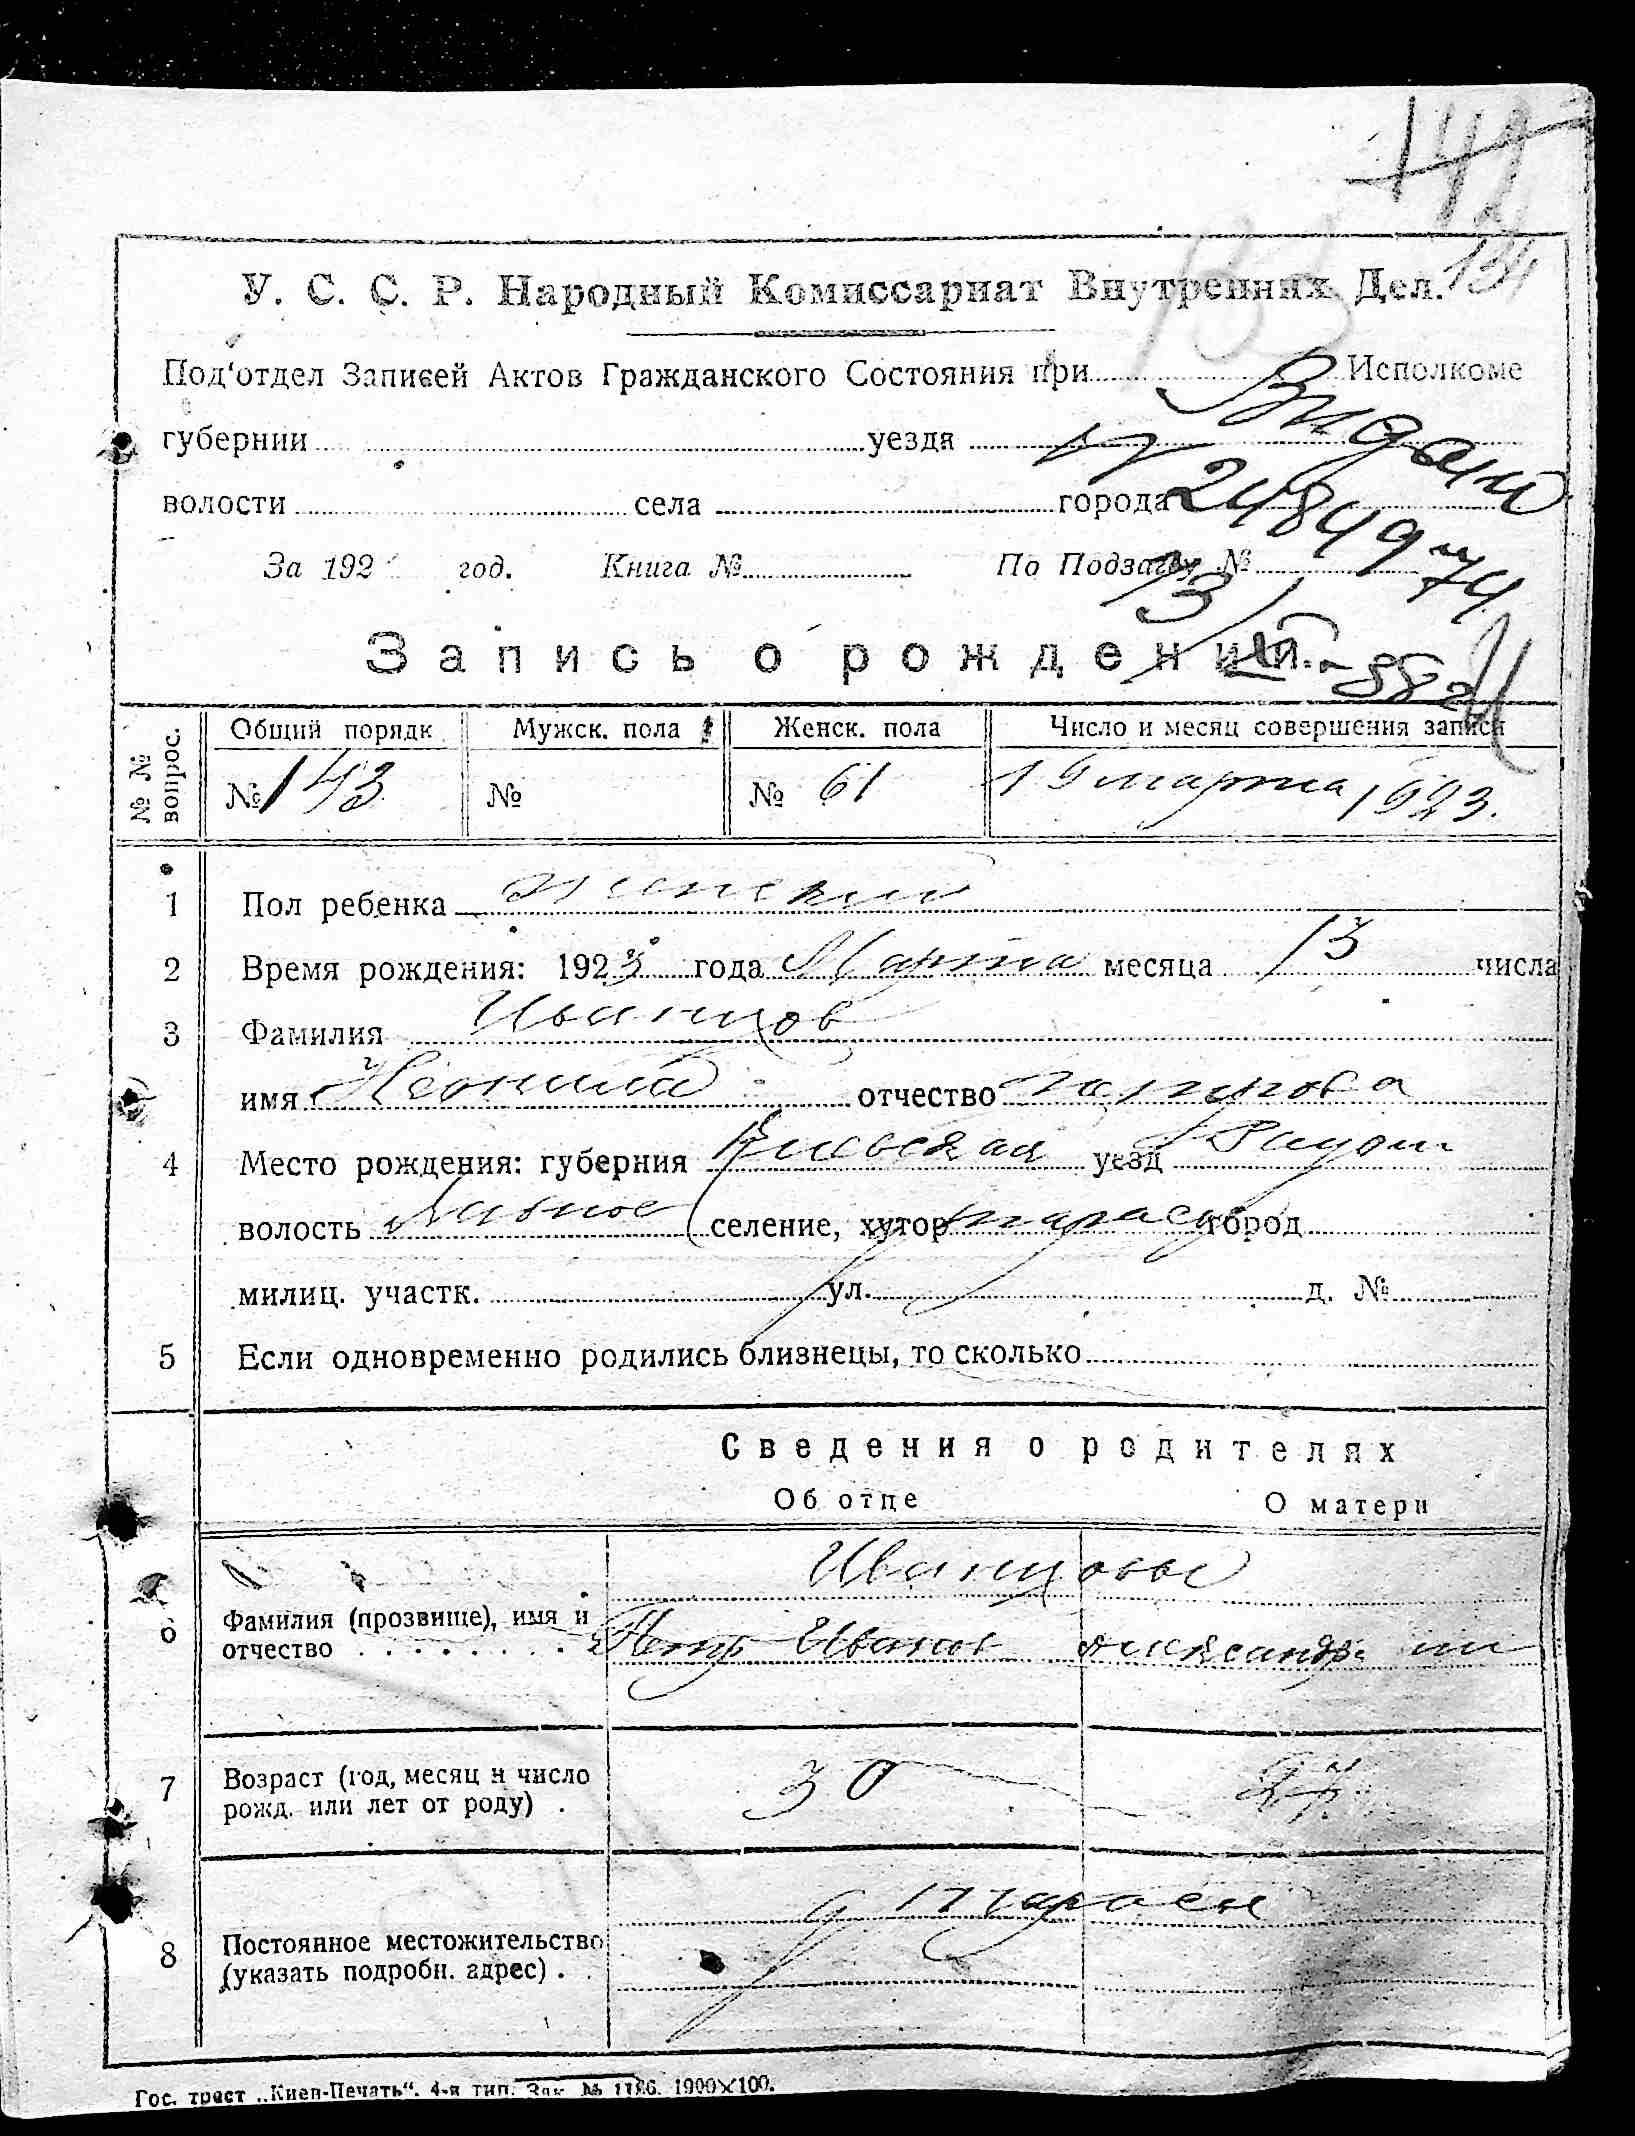 141
133
134
У. С. С. Р. Народный Комиссариат Внутренних Дел.
Под'отдел Записей Актов Гражданского Состояния при Исполкоме
губернии уезда
волости села города
Видано
24849 74
За 192 год. Книга № По Подзагу №
13/ -88г
Запись о рождении.
№№ вопрос.
Общий порядк. Мужск. пола Женск. пола Число и месяц совершения записи
№ 143 № № 61 19 марта 1923.
1 Пол ребенка женский
2 Время рождения: 1923 года Марта месяца 13 числа
3 Фамилия Иванцов
имя Неонила отчество Петрова
4 Место рождения: губерния Киевская уезд
волость селение, хутор город
милиц. участк. ул. д. №
5 Если одновременно родились близнецы, то сколько
Сведения о родителях
Об отце О матери
Иванцовы
6 Фамилия (прозвище), имя и
отчество Петр Иванов Александра
7 Возраст (год, месяц и число
рожд. или лет от роду) . 30 27
8 Постоянное местожительство
(указать подробн. адрес) .
Гос. трест „Киев-Печать“. 4-я тип. Зак. № 1186. 1900×100.